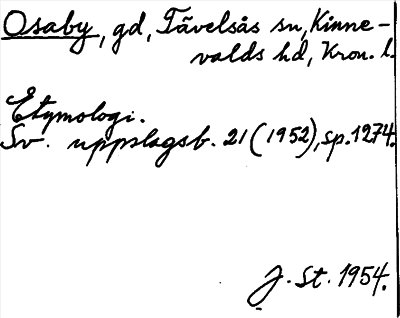 Osaby, gd, Tävelsås sn, Kinne-
valds hd, Kron. l.
Etymologi.
Sv. uppslagsb. 21 (1952), sp. 1274.
J. St. 1954.